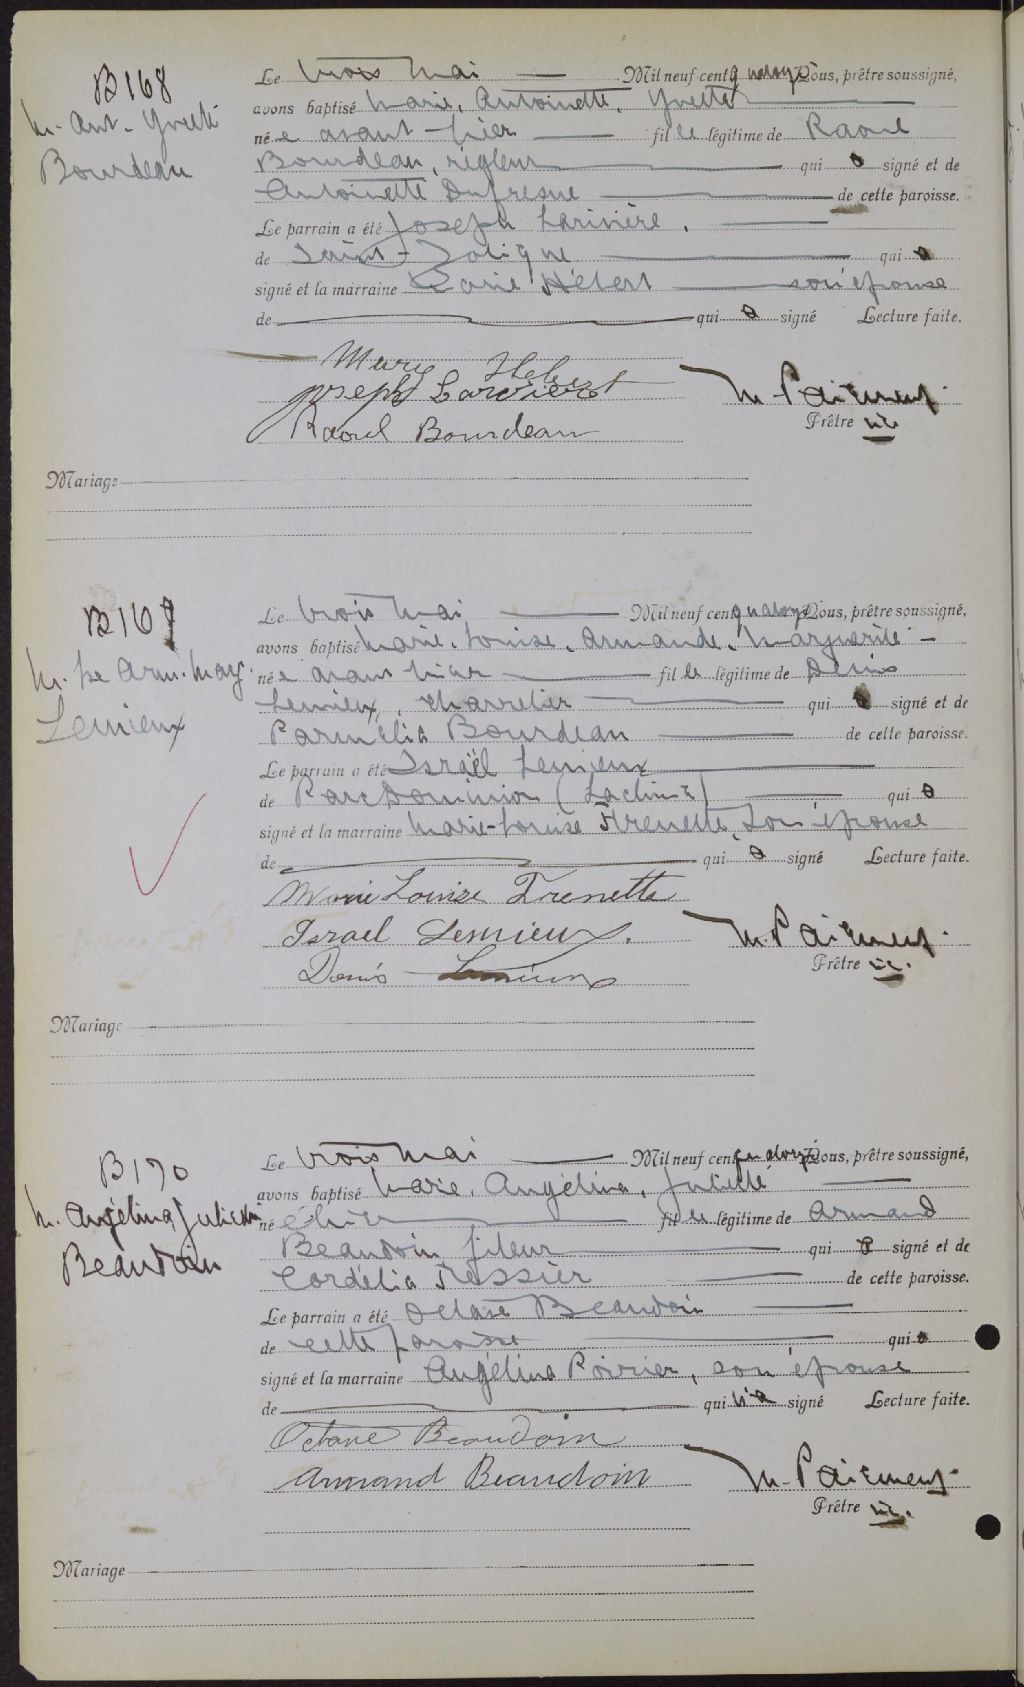 B168
M. Ant. Yvette
Bourdeau
Le trois mai Mil neuf cent quatorze Nous, prêtre soussigné,
avons baptisé Marie, Antoinette, Yvette
née avant-hier fille légitime de Raoul
Bourdeau, régleur qui a signé et de
Antoinette Dufresne de cette paroisse.
Le parrain a été Joseph Larivière,
de Saint-Zotique qui a
signé et la marraine Marie Hébert son épouse
de qui a signé Lecture faite.
Mary Hebert
Joseph Lariviere
Raoul Bourdeau
M. Paiement
Prêtre vic.
Mariage
B169
M. Lse Arm. Marg.
Lemieux
Le trois mai Mil neuf cent quatorze Nous, prêtre soussigné,
avons baptisé Marie, Louise, Armande, Marguerite
née avant hier fille légitime de Denis
Lemieux, charretier qui a signé et de
Parmélia Bourdeau de cette paroisse.
Le parrain a été Israël Lemieux
de Parc Dominion (Lachine) qui a
signé et la marraine Marie-Louise Frenette, son épouse
de qui a signé Lecture faite.
Marie Louise Frenette
Israel Lemieux.
Denis Lemieux
M. Paiement
Prêtre vic.
Mariage
B170
M. Angélina, Juliette
Beaudoin
Le trois mai Mil neuf cent quatorze Nous, prêtre soussigné,
avons baptisé Marie, Angélina, Juliette
née hier fille légitime de Armand
Beaudoin fileur qui a signé et de
Cordélia Tessier de cette paroisse.
Le parrain a été Octave Beaudoin
de cette paroisse qui a
signé et la marraine Angélina Poirier, son épouse
de qui n'a signé Lecture faite.
Octave Beaudoin
Armand Beaudoin
M. Paiement
Prêtre vic.
Mariage